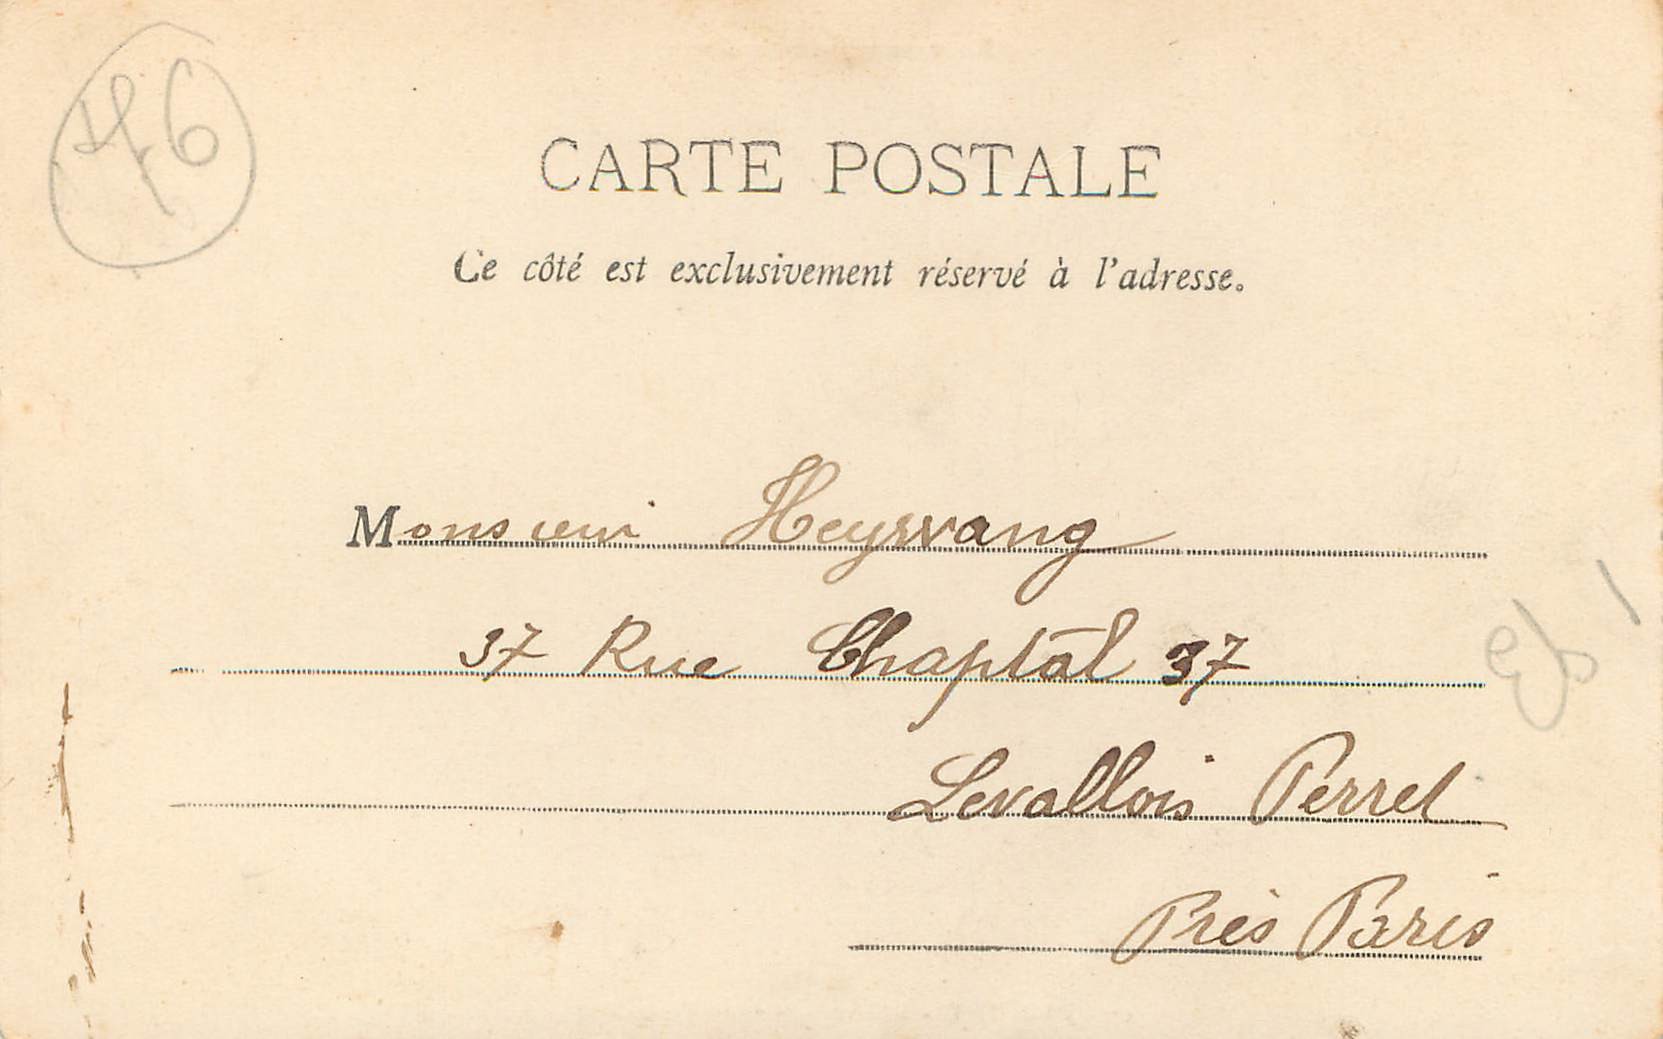 46
CARTE POSTALE
Ce côté est exclusivement réservé à l'adresse.
Monsieur Heyrvang
37 Rue Chaptal 37
Levallois Perret
Près Paris